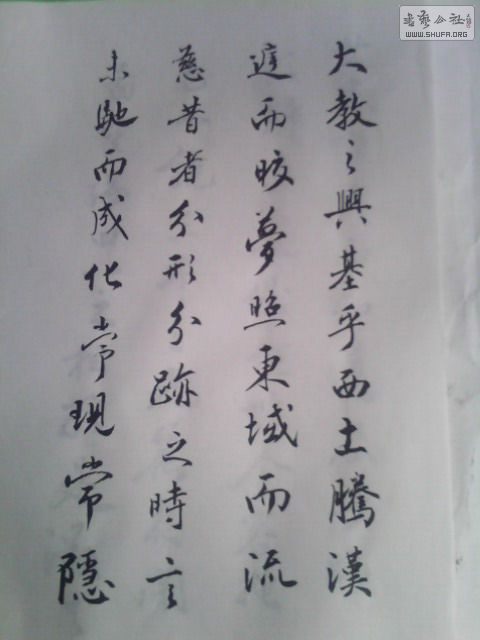 大教之興基乎西土騰漢
庭而皎夢照東域而流
慈昔者分形分跡之時言
未馳而成化當現常隱
书艺公社
WWW.SHUFA.ORG